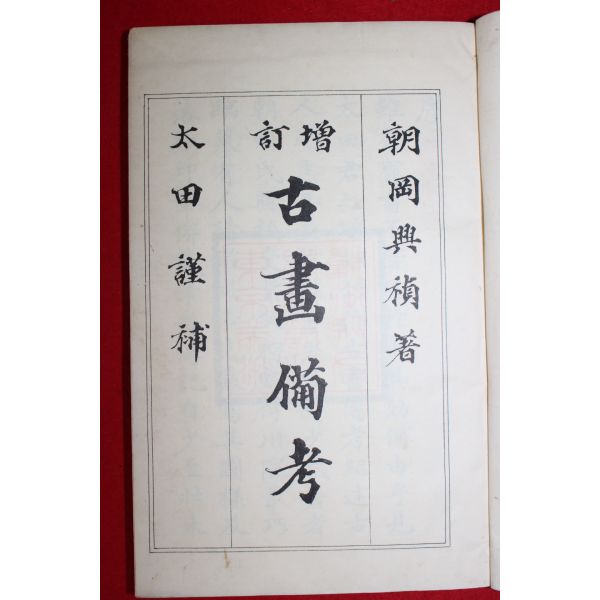 朝岡興禎著
増訂
古畫備考
太田謹補